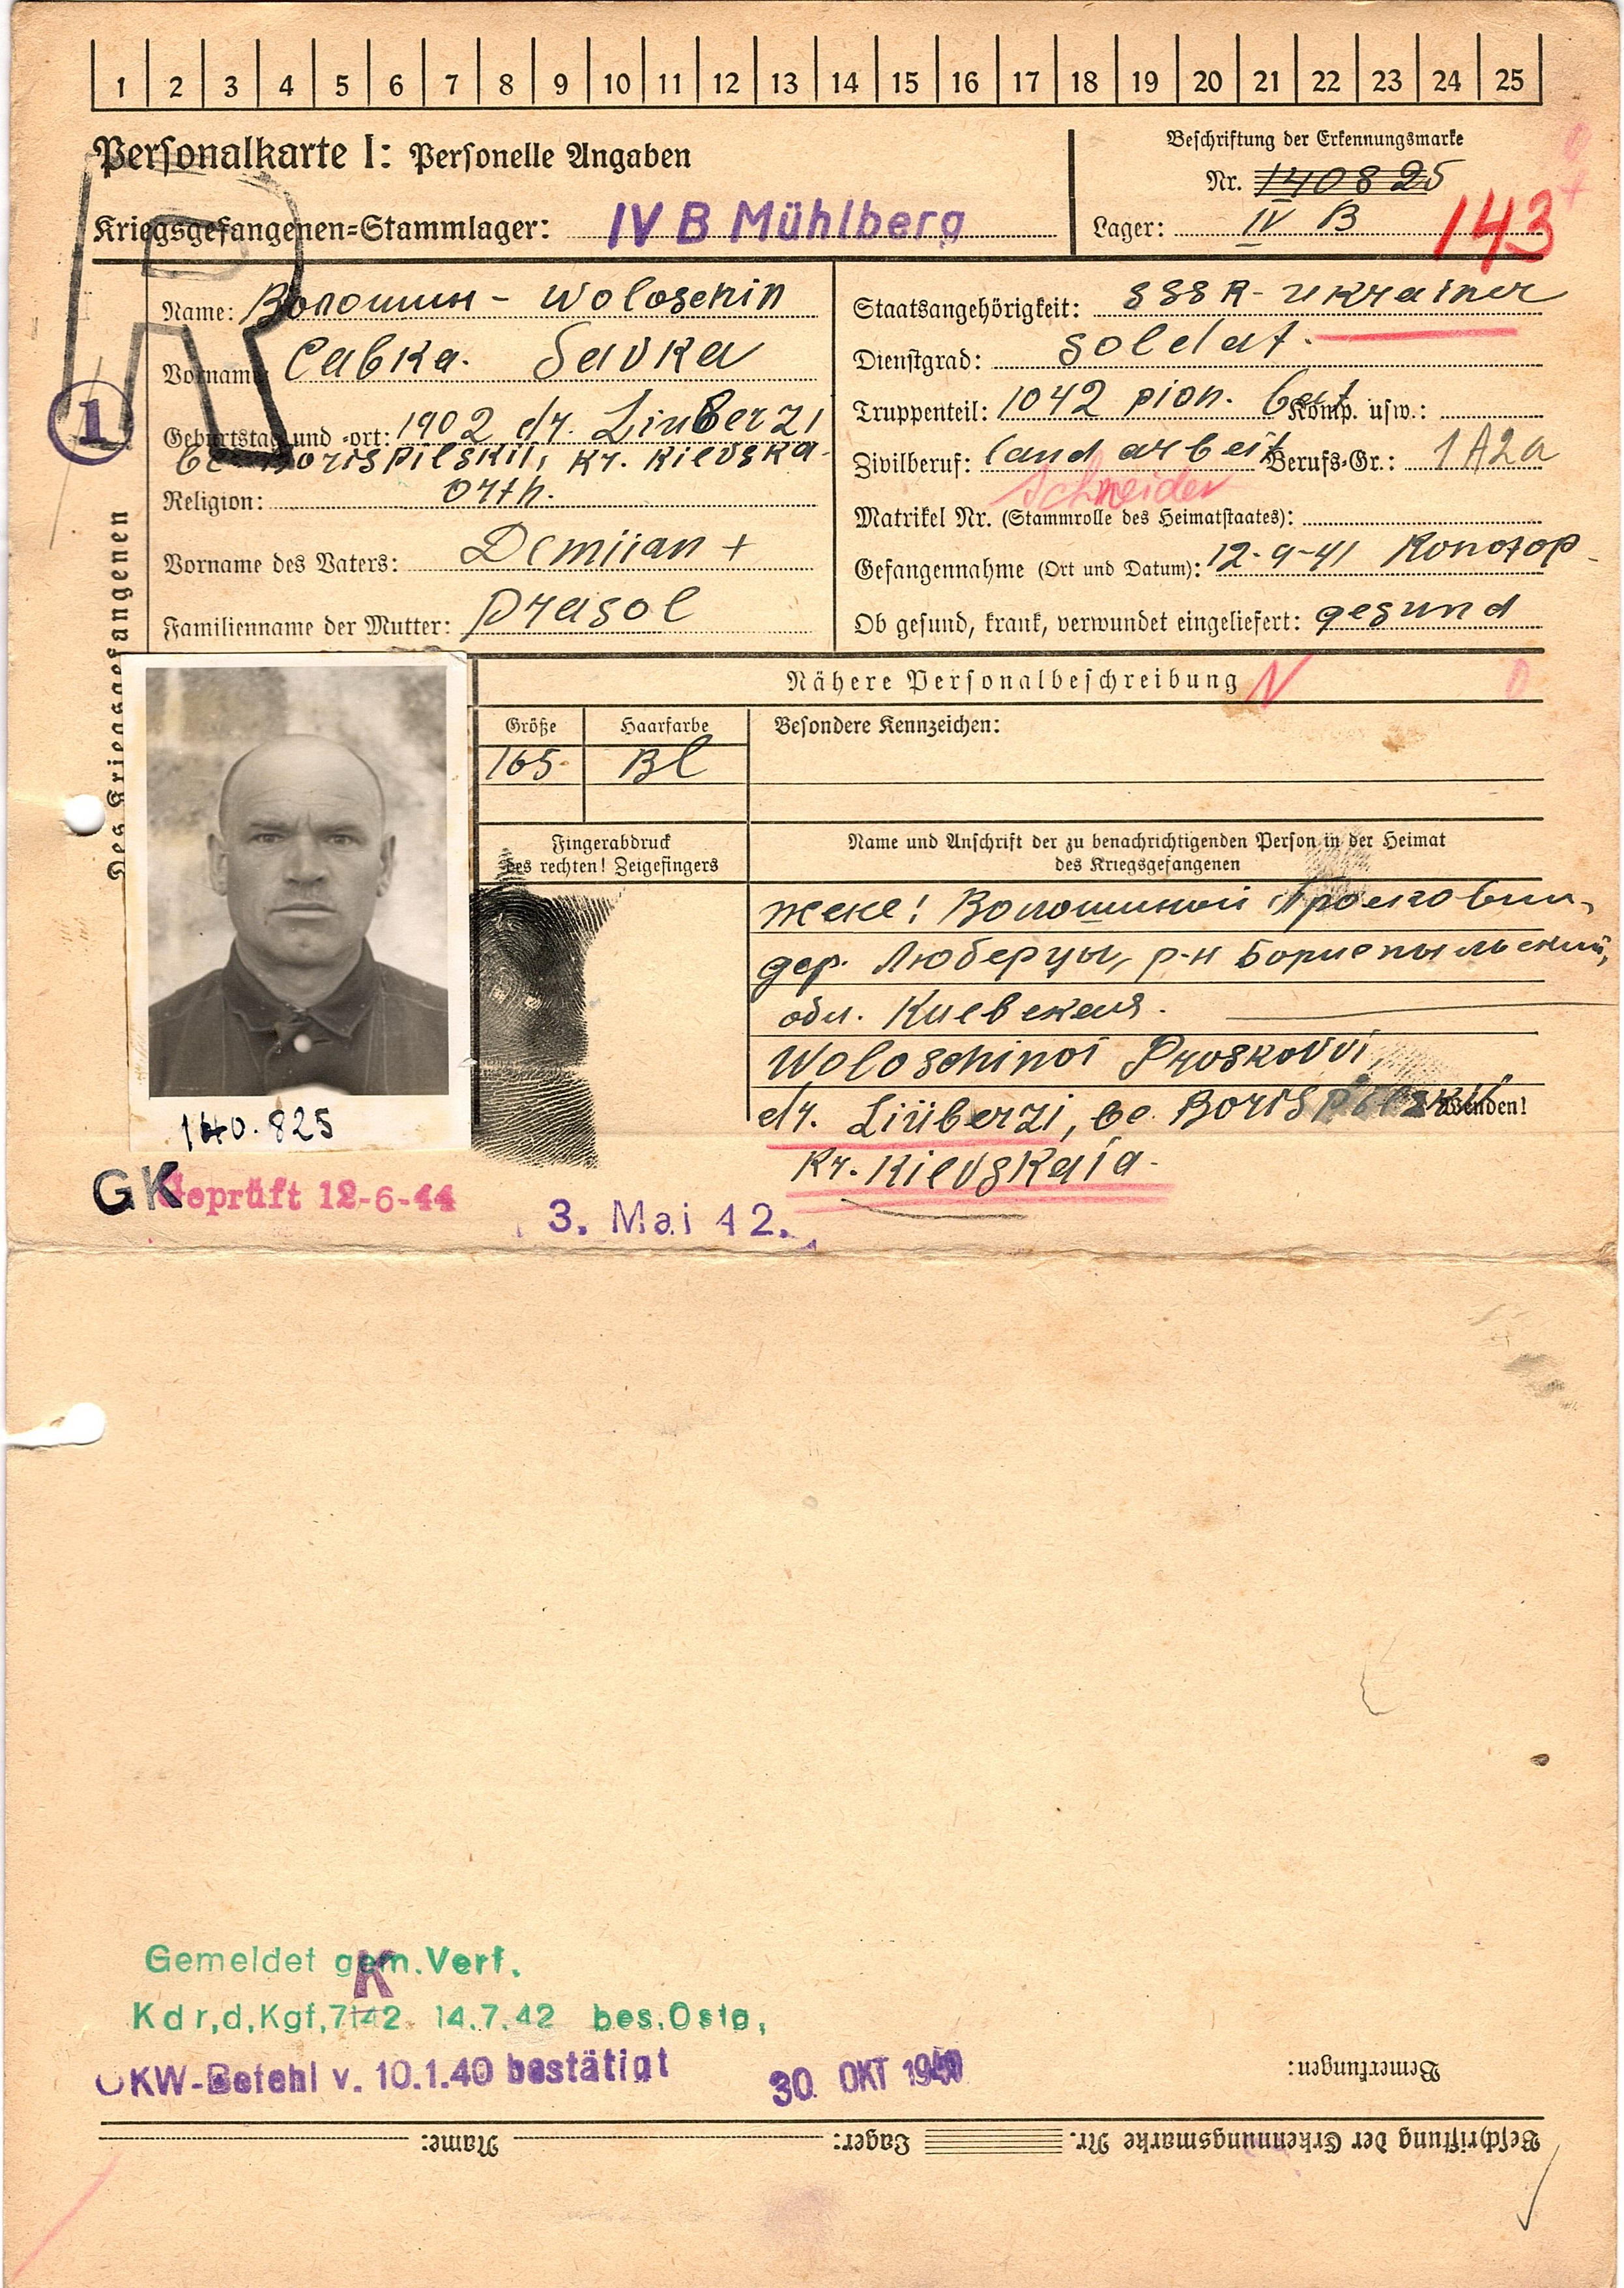 1 2 3 4 5 6 7 8 9 10 11 12 13 14 15 16 17 18 19 20 21 22 23 24 25
Personalkarte I: Personelle Angaben
Kriegsgefangenen-Stammlager: IV B Mühlberg
Beschriftung der Erkennungsmarke
Nr. 140825
Lager: IV B
143
1
Des Kriegsgefangenen
Name: Волошин - Woloschin
Vorname: Савка. Savka
Geburtstag und -ort: 1902 dr. Liuberzi
be Borispilskii, Kr. Kievska
Religion: orth.
Vorname des Vaters: Demiian +
Familienname der Mutter: Prasol
Staatsangehörigkeit: SSSR - Ukrainer
Dienstgrad: Soldat.
Truppenteil: 1042 pion. bat Komp. usw.:
Zivilberuf: landarbeit Berufs-Gr.: 1A2a
Schneider
Matrikel Nr. (Stammrolle des Heimatstaates):
Gefangennahme (Ort und Datum): 12-9-41 Konotop
Ob gesund, krank, verwundet eingeliefert: gesund
Nähere Personalbeschreibung N
Größe Haarfarbe Besondere Kennzeichen:
165 Bl
Fingerabdruck
des rechten! Zeigefingers
Name und Anschrift der zu benachrichtigenden Person in der Heimat
des Kriegsgefangenen
Жене! Волошиной
дер. Люберцы, р-н Бориспыльский,
обл. Киевская.
Woloschinoi Proskovvi,
dr. Liüberzi, be. Borispilskii,
Wenden!
Kr. Kievskaia.
140.825
GK Geprüft 12-6-44
3. Mai 42.
Gemeldet gem. Verf.
K
Kdr,d,Kgf,7142 14.7.42 bes.Ostg,
OKW-Befehl v. 10.1.40 bestätigt 30. OKT 1940
Bemerkungen:
Beschriftung der Erkennungsmarke Nr. Lager: Name: